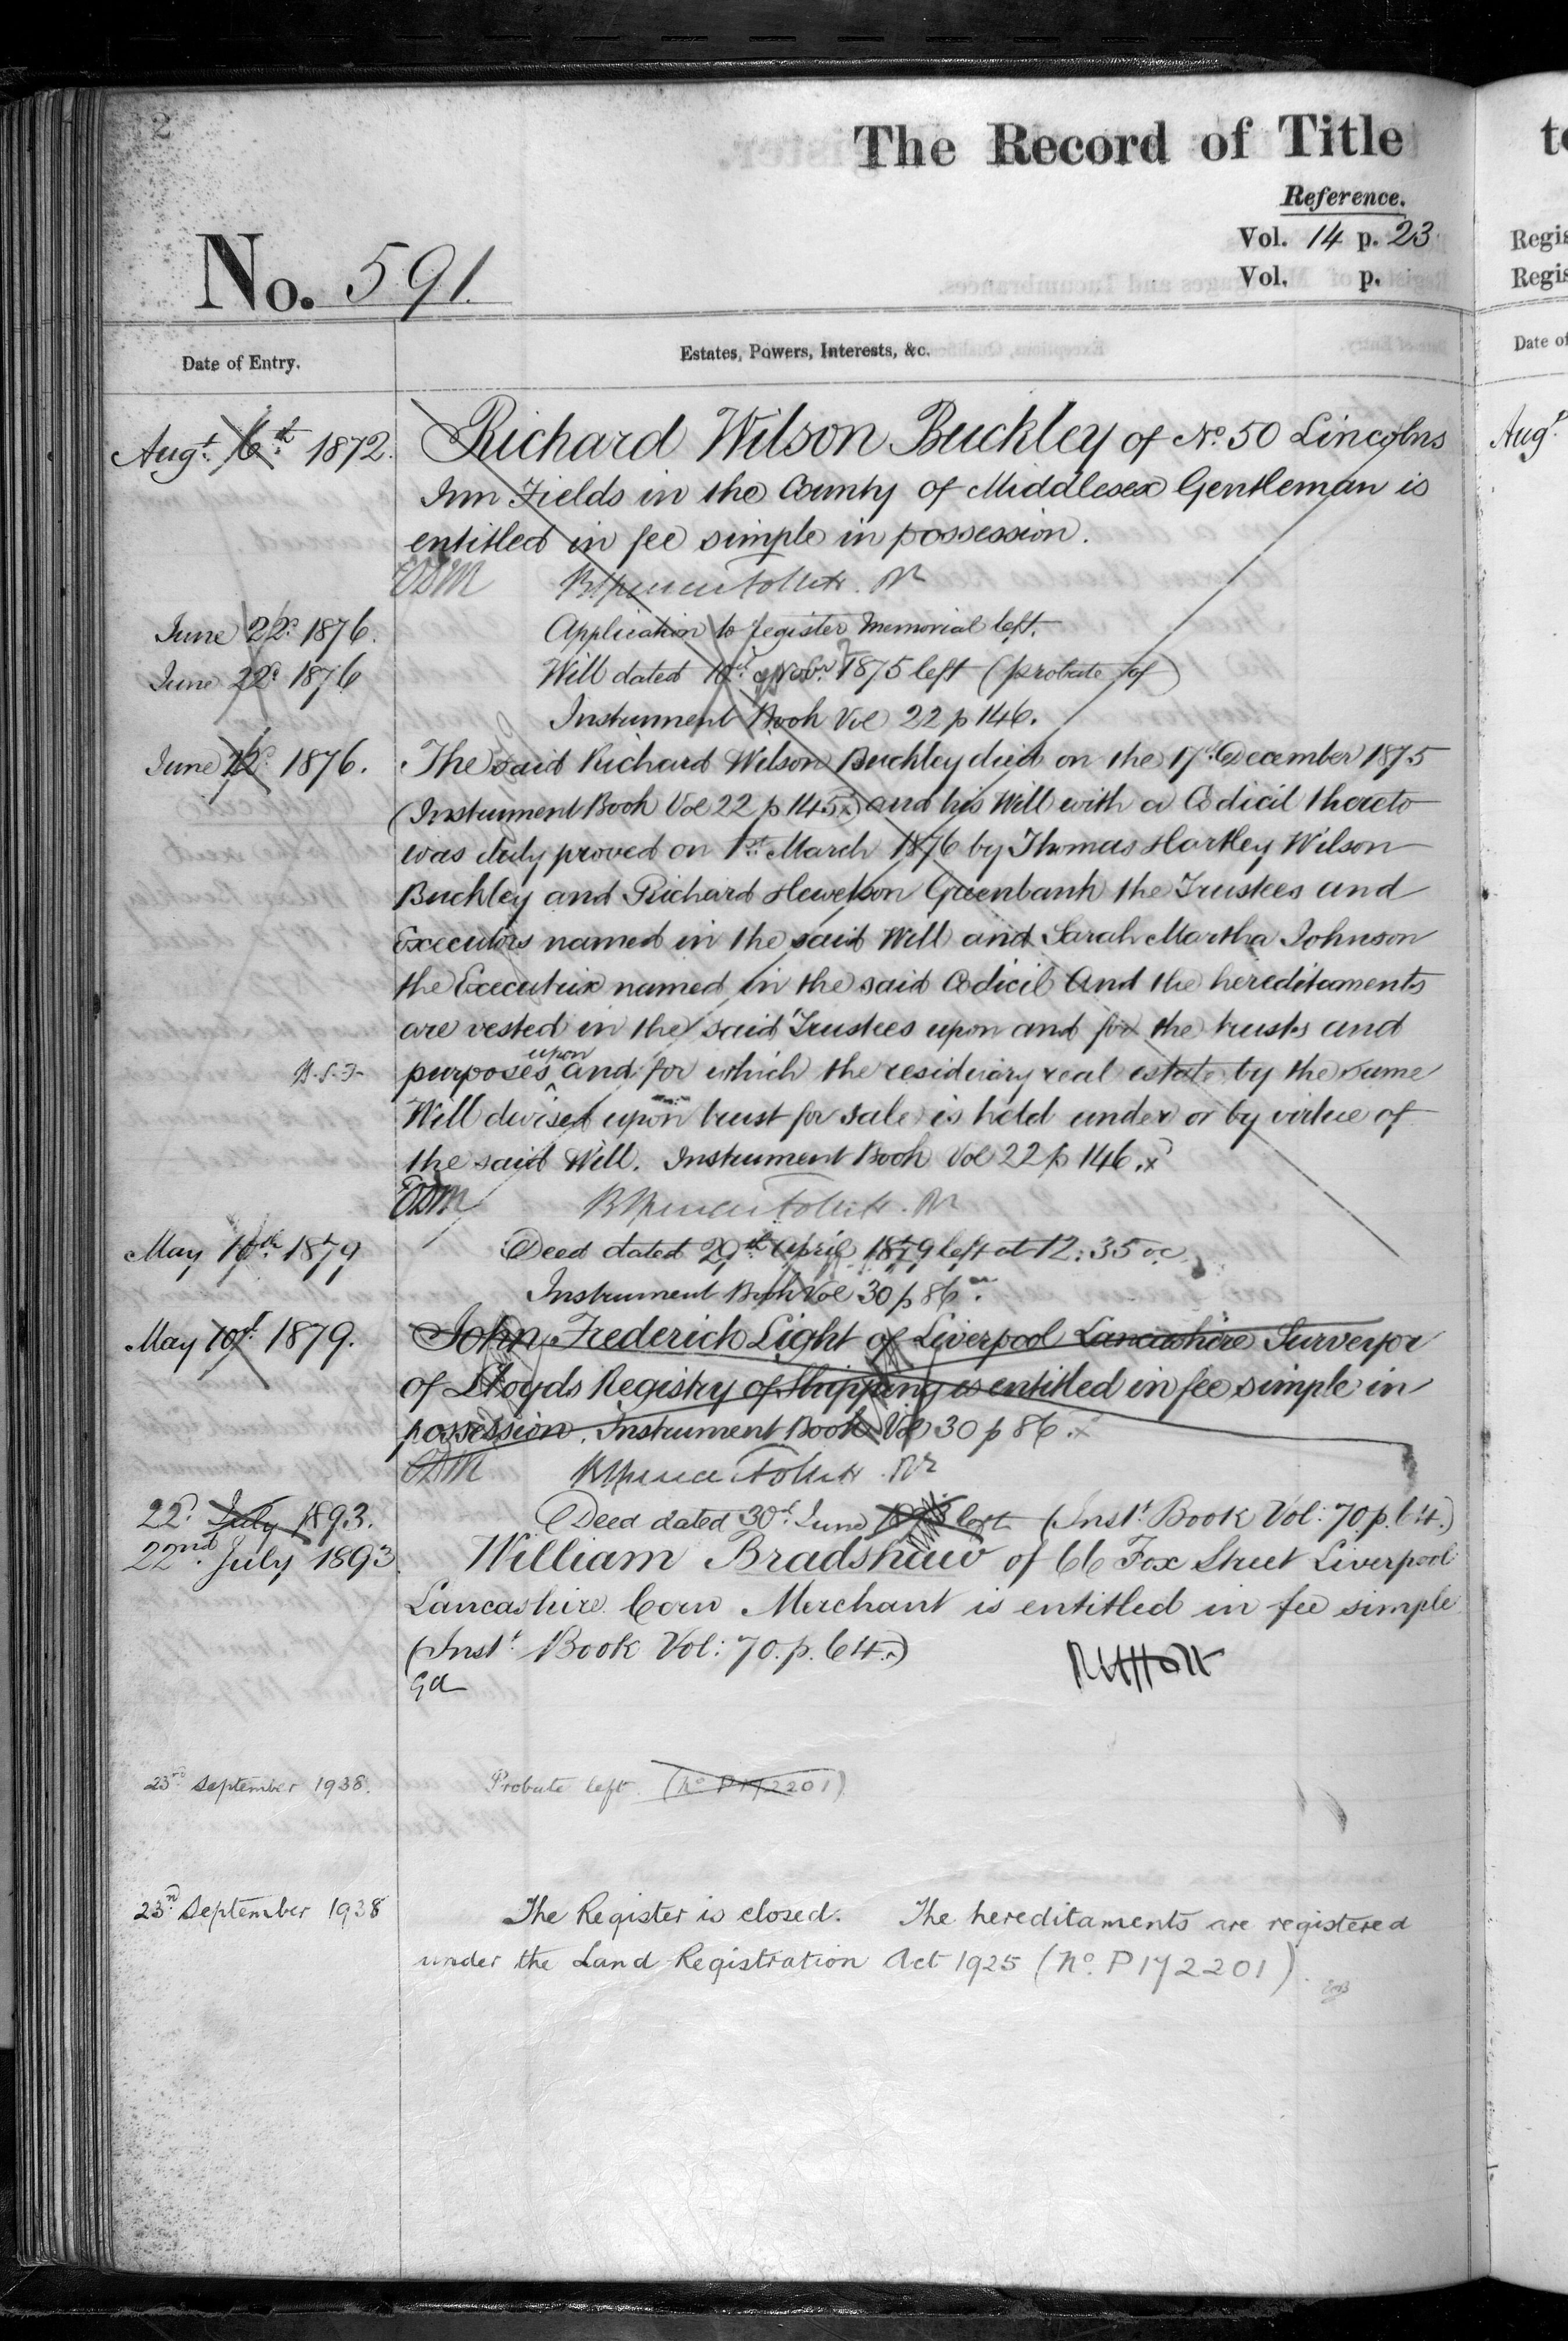 2
The Record of Title
Reference.
Vol. 14 p. 23
Vol. p.
No. 591.
Date of Entry.
Estates, Powers, Interests, &c.
Augt. 6th 1872. Richard Wilson Buckley of No. 50 Lincolns
Inn Fields in the County of Middlesex Gentleman is
entitled in fee simple in possession.
June 22d 1876. Application to register Memorial left.
June 22d 1876 Will dated 10th Novbr. 1875 left (probate of)
Instrument Book Vol 22 p 146.
June 22d 1876. The said Richard Wilson Buckley died on the 17th December 1875
(Instrument Book Vol 22 p 145x) and his Will with a Codicil thereto
was duly proved on 1st March 1876 by Thomas Hartley Wilson
Buckley and Richard Hewetson Greenbank the Trustees and
Executors named in the said Will and Sarah Martha Johnson
the Executrix named in the said Codicil And the hereditaments
are vested in the said Trustees upon and for the trusts and
purposes upon and for which the residuary real estate by the same
Will devised upon trust for sale is held under or by virtue of
the said Will. Instrument Book Vol 22 p 146.x
May 10th 1879 Deed dated 29th April 1879 left at 12:35
Instrument Book Vol 30 p 86
May 10th 1879. John Frederick Light of Liverpool Lancashire Surveyor
of Lloyds Registry of Shipping is entitled in fee simple in
possession. Instrument Book Vol 30 p 86.x
22d July 1893. Deed dated 30th June 1893 left (Inst. Book Vol: 70. p. 64.)
22nd. July 1893. William Bradshaw of 66 Fox Street Liverpool
Lancashire Corn Merchant is entitled in fee simple
(Inst. Book Vol: 70. p. 64.)
23rd September 1938. Probate left. (No P172201)
23rd September 1938 The Register is closed. The hereditaments are registered
under the Land Registration Act 1925 (No. P172201).
to
Regis
Regis
Date of
Augt.